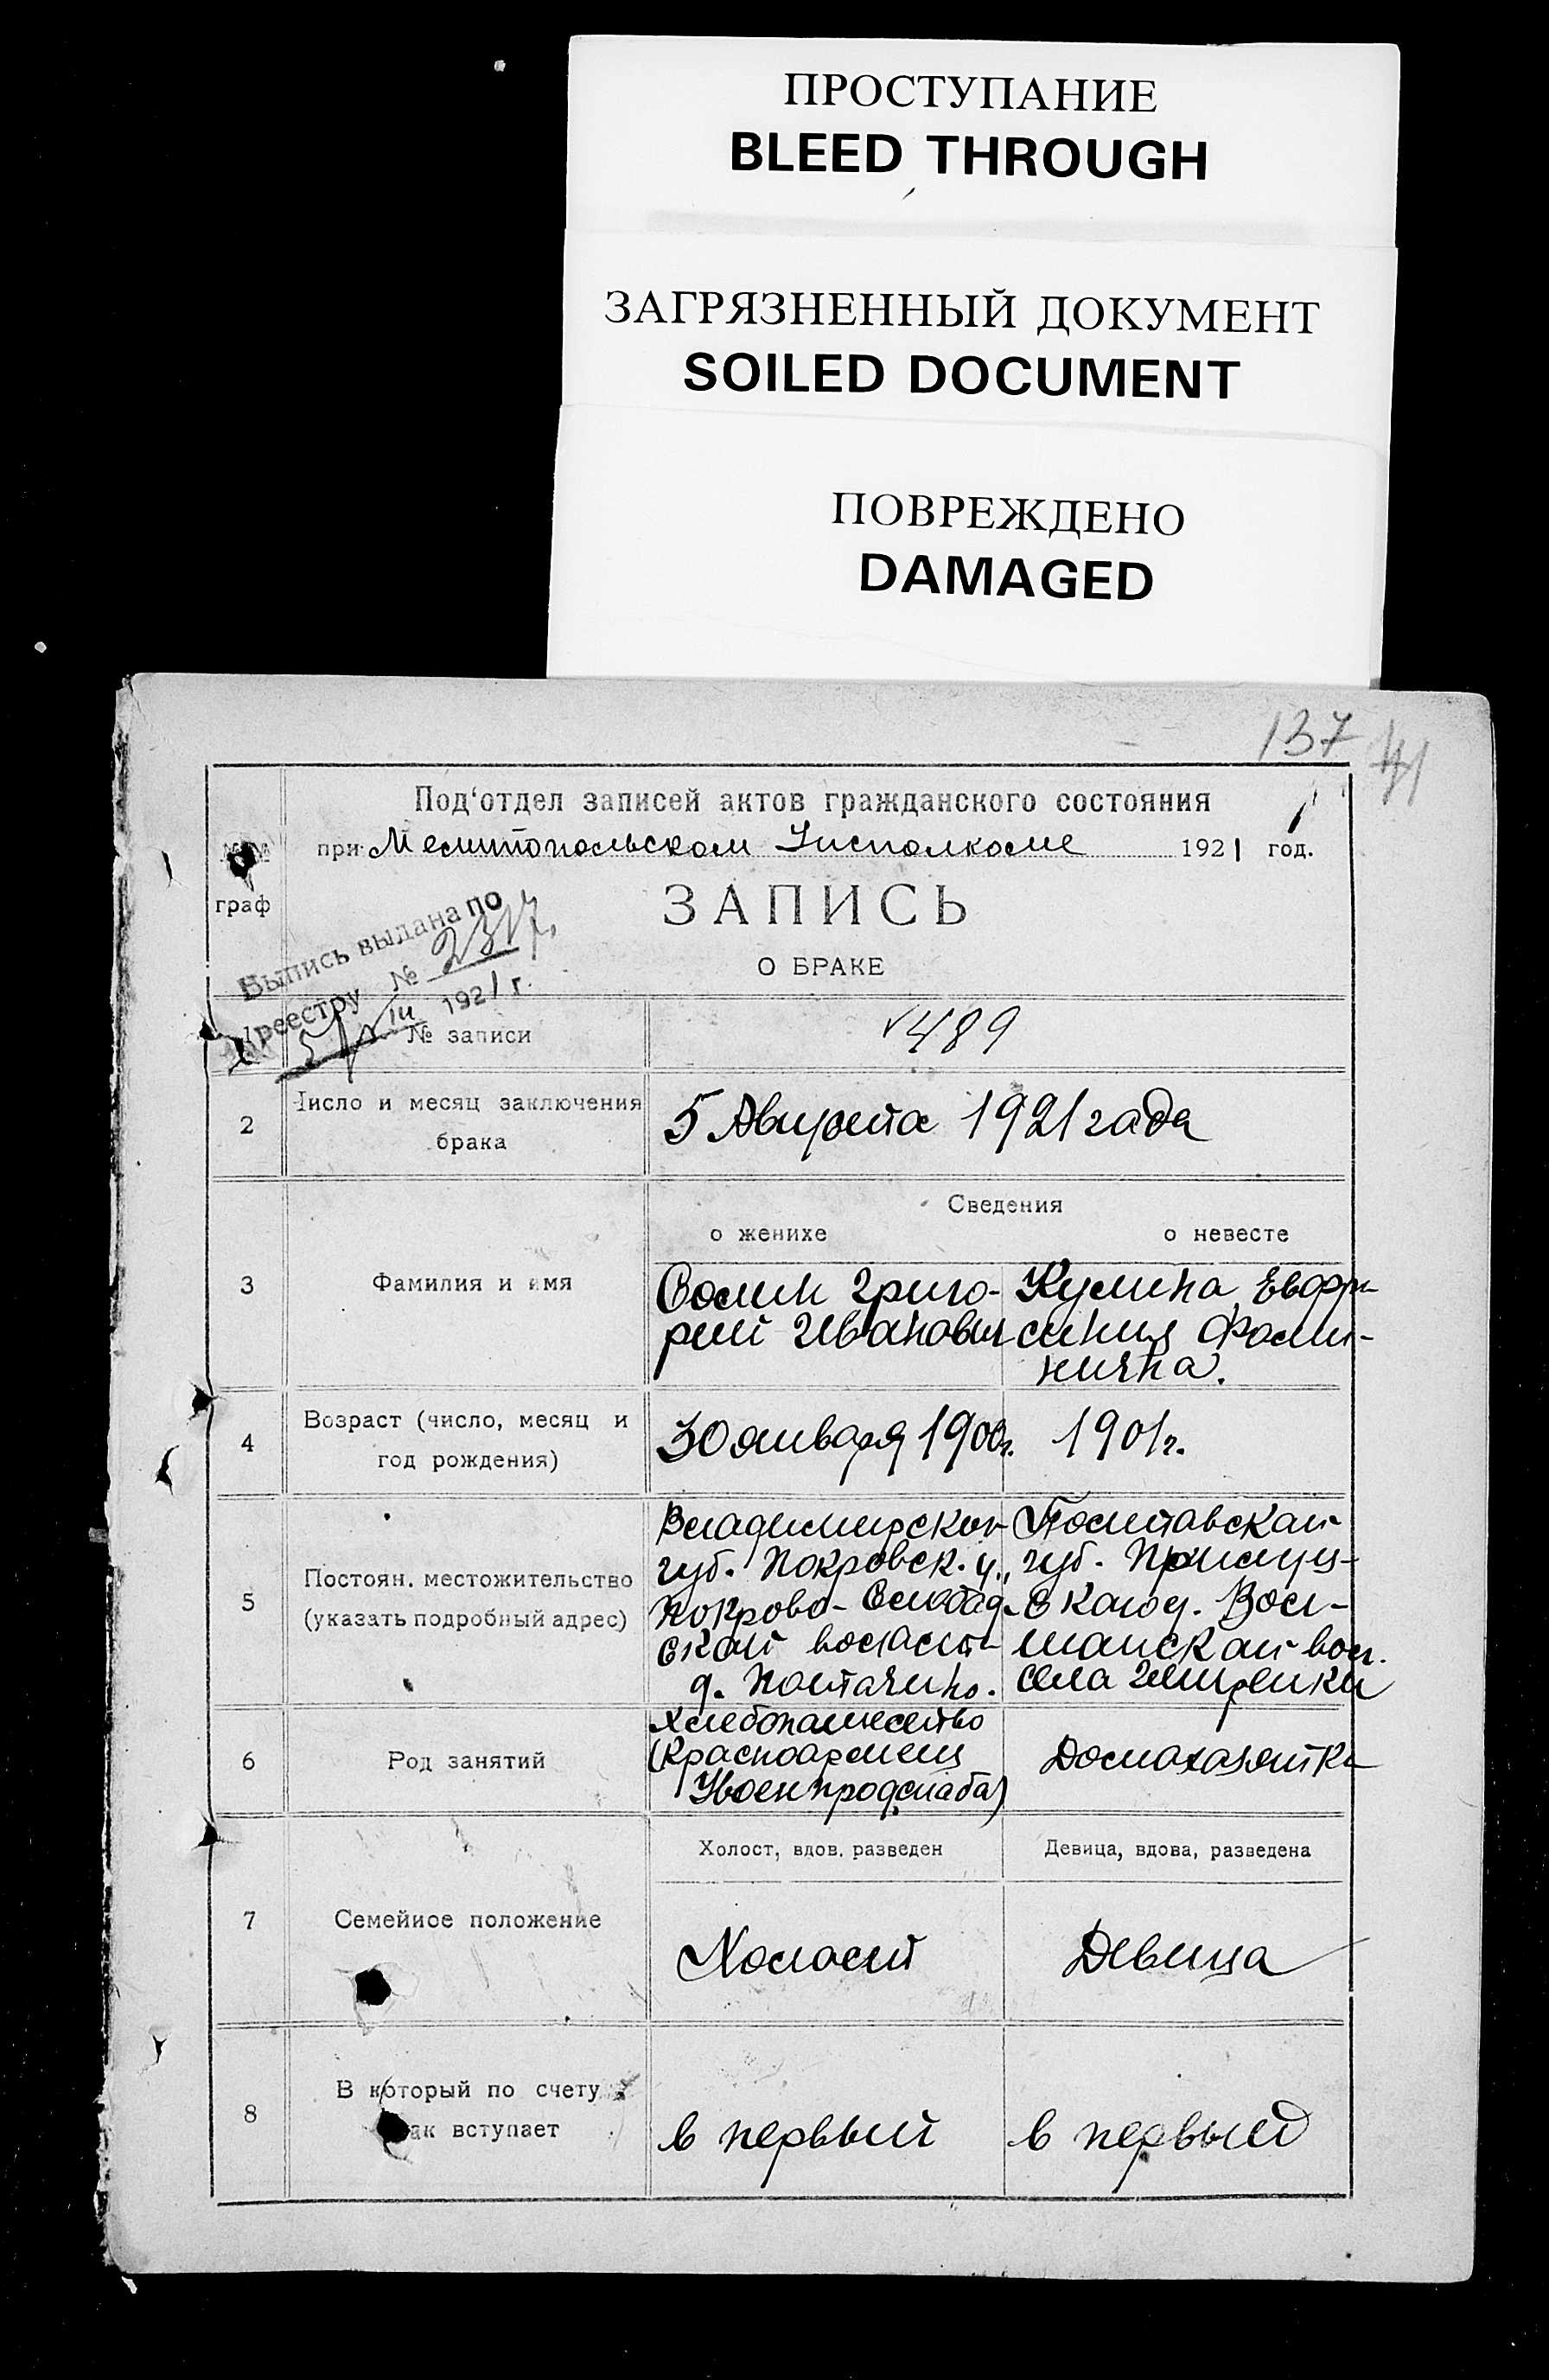 ПРОСТУПАНИЕ
BLEED THROUGH
ЗАГРЯЗНЕННЫЙ ДОКУМЕНТ
SOILED DOCUMENT
ПОВРЕЖДЕНО
DAMAGED
137
Под'отдел записей актов гражданского состояния
при Мелитопольском Уисполкоме 1921 год.
№№
граф
ЗАПИСЬ
О БРАКЕ
Выпись выдана по
реестру № 2317
5/VIII 1921 г.
№ записи
489
2
Число и месяц заключения
брака
5 Августа 1921 года
Сведения
о женихе
о невесте
3
Фамилия и имя
Волин Григо-
рий Иванович
Кулина Евфро-
синия Фоми-
нична.
4
Возраст (число, месяц и
год рождения)
30 января 1900г.
1901г.
5
Постоян. местожительство
(указать подробный адрес)
Владимирской
губ. Покровск. у.,
Покрово-Слобод-
ской волости
д.
Полтавская
губ.
ская
вол.
села
6
Род занятий
Хлебопашество
(Красноармеец
Увоенпродснаба)
Домохозяйка
7
Семейное положение
Холост, вдов, разведен
Девица, вдова, разведена
Холост
Девица
8
В который по счету
ак вступает
в первый
в первый